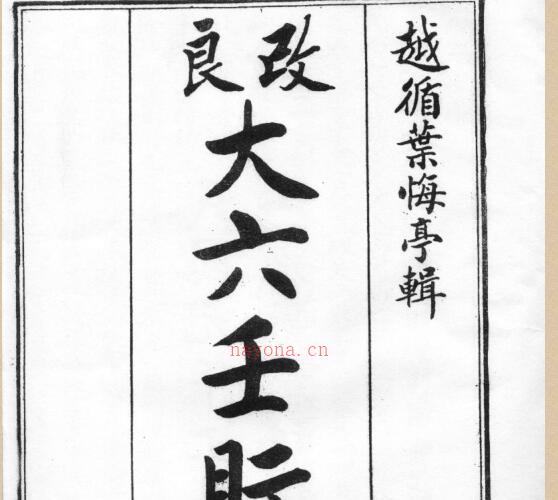 越循葉悔亭輯
改良
大六壬
nayona.cn